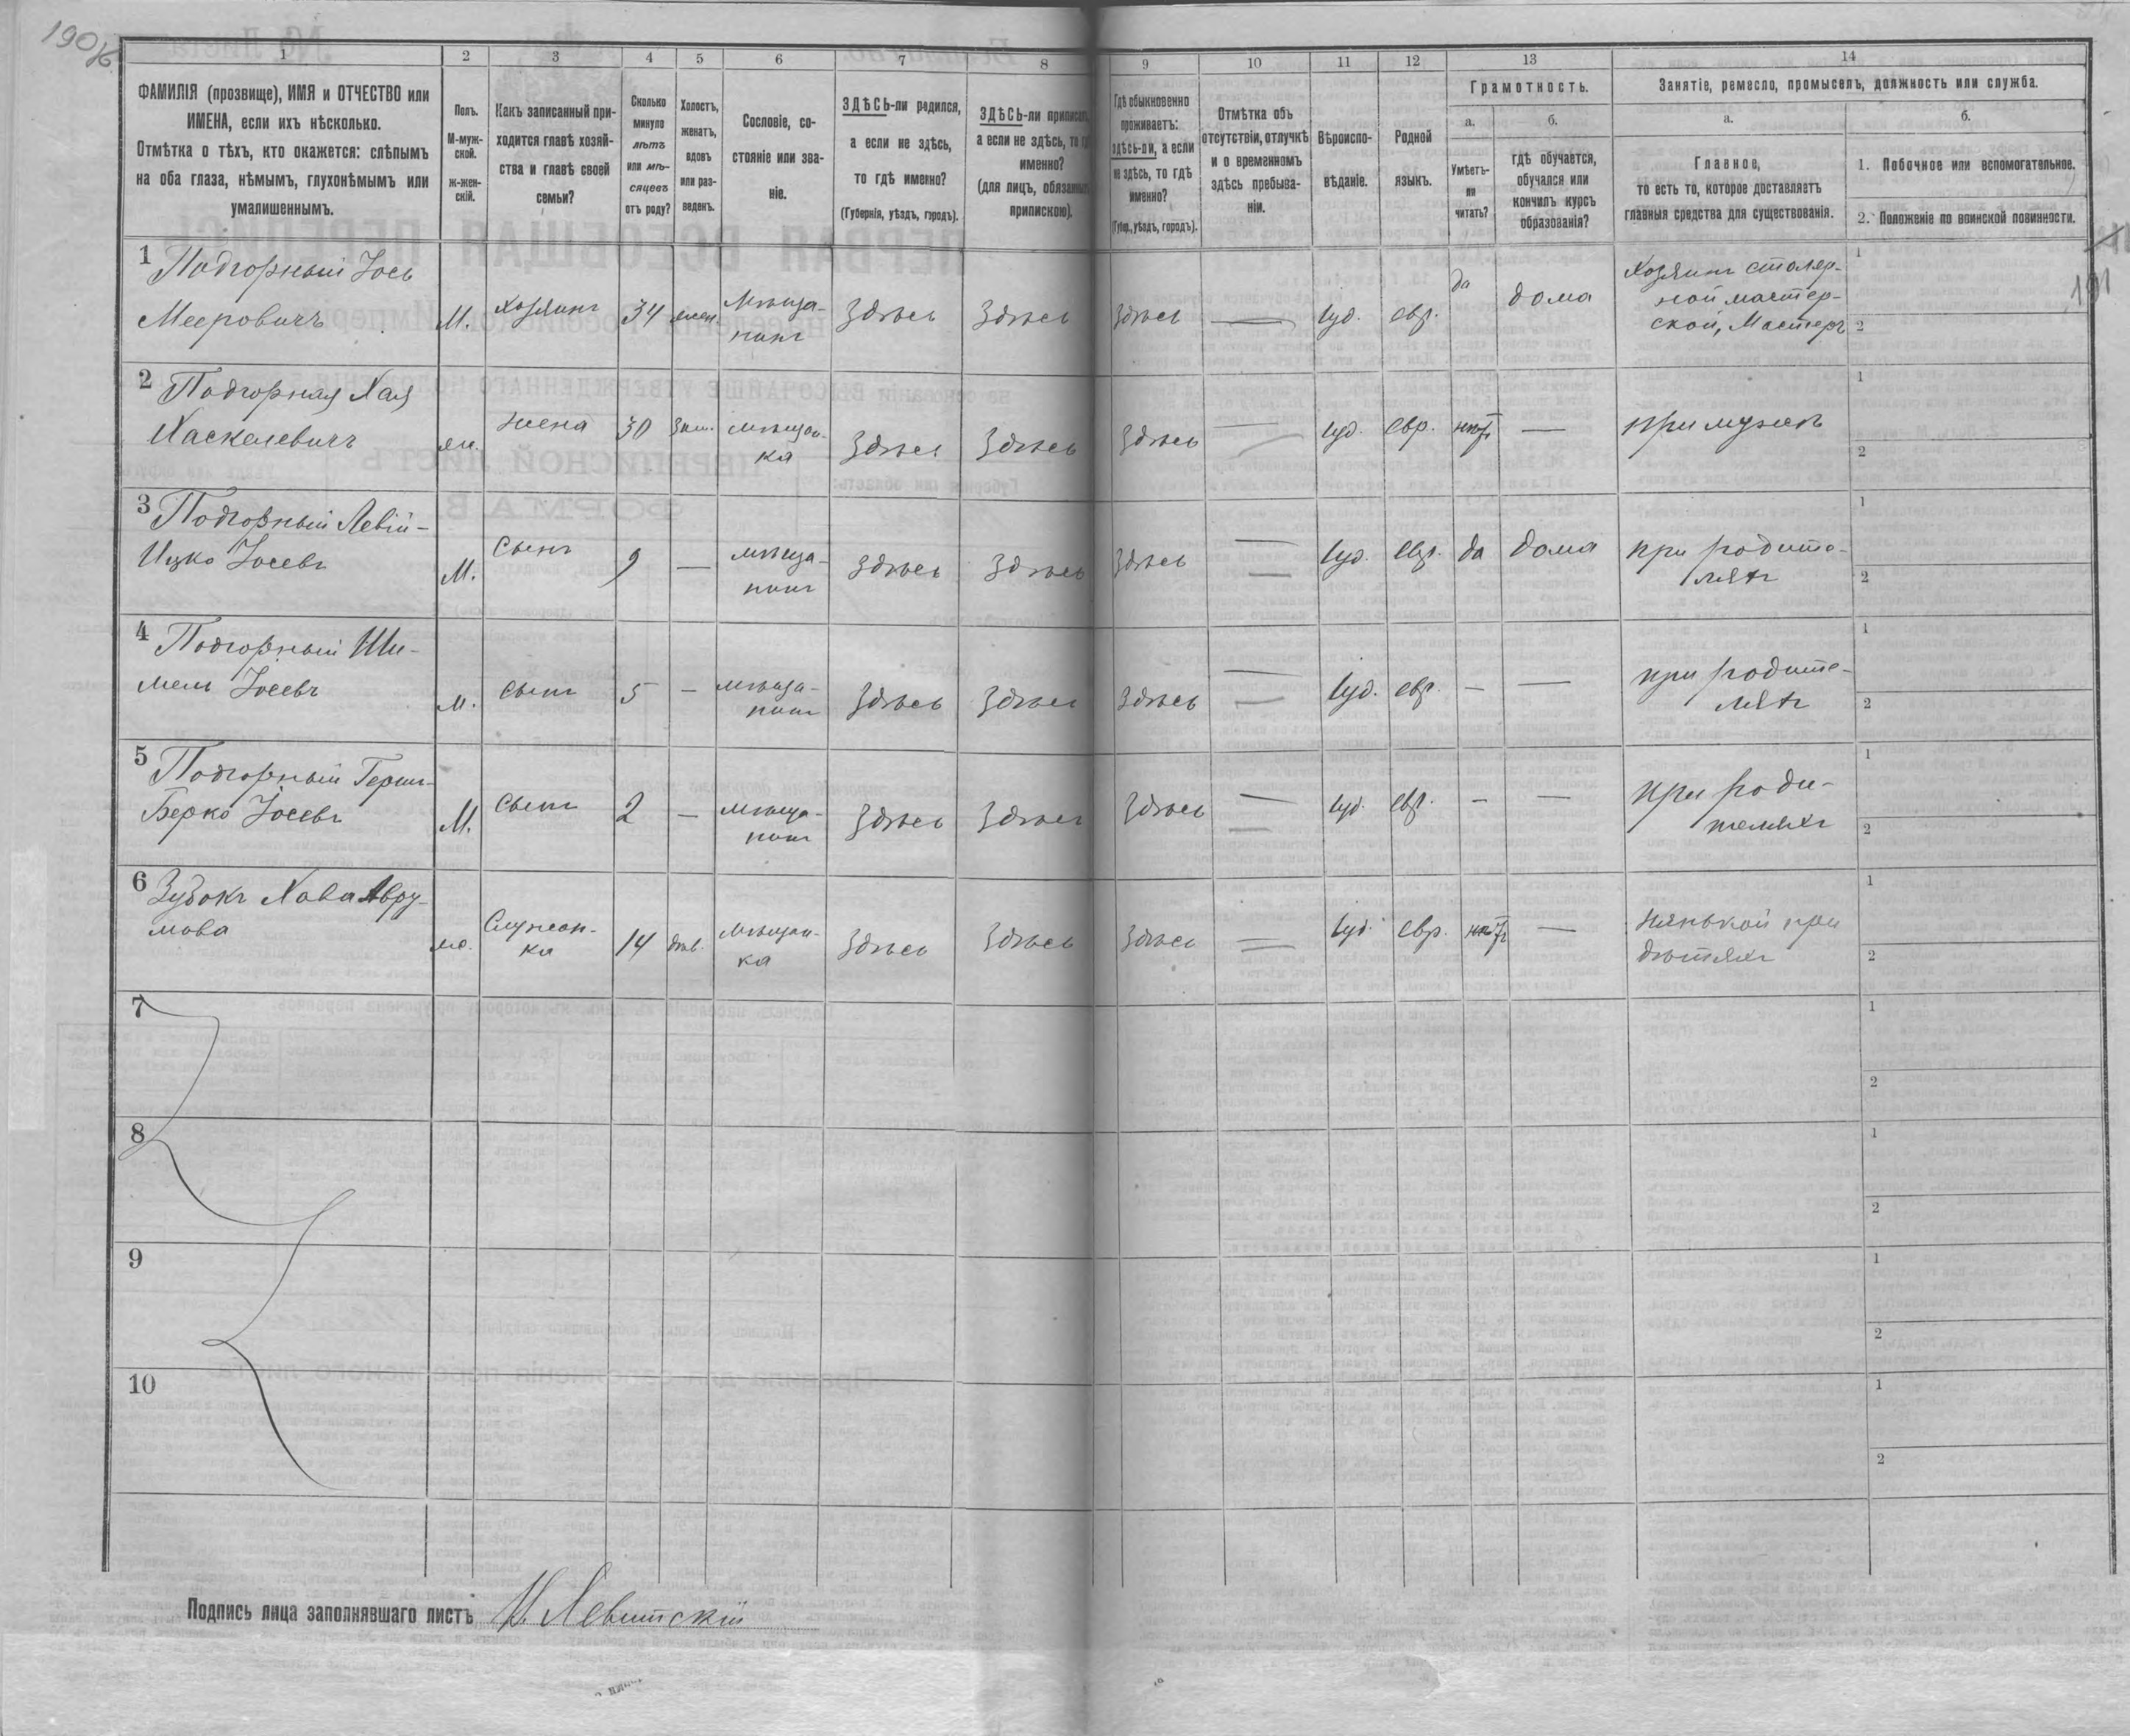 190
1
2
3
4
5
6
7
8
9
10
11
12
13
14
ФАМИЛІЯ (прозвище), ИМЯ и ОТЧЕСТВО или
ИМЕНА, если ихъ нѣсколько.
Отмѣтка о тѣхъ, кто окажется: слѣпымъ
на оба глаза, нѣмымъ, глухонѣмымъ или
умалишеннымъ.
Полъ.
М-муж-
ской.
Ж-жен-
скій.
Какъ записанный при-
ходится главѣ хозяй-
ства и главѣ своей
семьи?
Сколько
минуло
лѣтъ
или мѣ-
сяцевъ
отъ роду?
Холостъ,
женатъ,
вдовъ
или раз-
веденъ.
Сословіе, со-
стояніе или зва-
ніе.
ЗДѢСЬ-ли родился,
а если не здѣсь,
то гдѣ именно?
(Губернія, уѣздъ, городъ).
ЗДѢСЬ-ли
а если не здѣсь, то
именно?
(для лицъ,
припискою).
Гдѣ обыкновенно
проживаетъ:
здѣсь-ли, а если
не здѣсь, то гдѣ
именно?
(Губер., уѣздъ, городъ).
Отмѣтка объ
отсутствіи, отлучкѣ
и о временномъ
здѣсь пребыва-
ніи.
Вѣроиспо-
вѣданіе.
Родной
языкъ.
Грамотность.
а.
Умѣетъ-
ли
читать?
б.
гдѣ обучается,
обучался или
кончилъ курсъ
образованія?
Занятіе, ремесло, промыселъ, должность или служба.
а.
Главное,
то есть то, которое доставляетъ
главныя средства для существованія.
б.
1. Побочное или вспомогательное.
2. Положеніе по воинской повинности.
191
1 Подгорный Іось
Мееровичъ
М.
Хозяинъ
34
жен.
Мѣща-
нинъ
Здѣсь
Здѣсь
Здѣсь
—
Іуд.
евр.
да
дома
Хозяинъ столяр-
ной мастер-
ской, Мастеръ
1
2
2 Подгорная Хая
Хаскелевичъ
ж.
Жена
30
Зам.
мѣщан-
ка
Здѣсь
Здѣсь
Здѣсь
—
Іуд.
евр.
нѣтъ
—
при мужѣ
1
2
3 Подгорный Левій-
Ицко Іосевъ
М.
Сынъ
9
—
мѣща-
нинъ
Здѣсь
Здѣсь
Здѣсь
—
—
Іуд.
евр.
да
дома
при родите-
ляхъ
1
2
4 Подгорный Ши-
мель Іосевъ
М.
сынъ
5
—
мѣща-
нинъ
Здѣсь
Здѣсь
Здѣсь
—
—
Іуд.
евр.
—
—
при родите-
ляхъ
1
2
5 Подгорный Герш-
Берко Іосевъ
М.
Сынъ
2
—
мѣща-
нинъ
Здѣсь
Здѣсь
Здѣсь
—
—
Іуд.
евр.
—
—
при роди-
теляхъ
1
2
6 Зубокъ Хава Авру-
мова
ж.
Служан-
ка
14
дѣв.
Мѣщан-
ка
Здѣсь
Здѣсь
Здѣсь
—
—
Іуд.
евр.
нѣтъ
—
Нянькой при
дѣтяхъ
1
2
7
1
2
8
1
2
9
1
2
10
1
2
Подпись лица заполнявшаго листъ Н. Левитскій